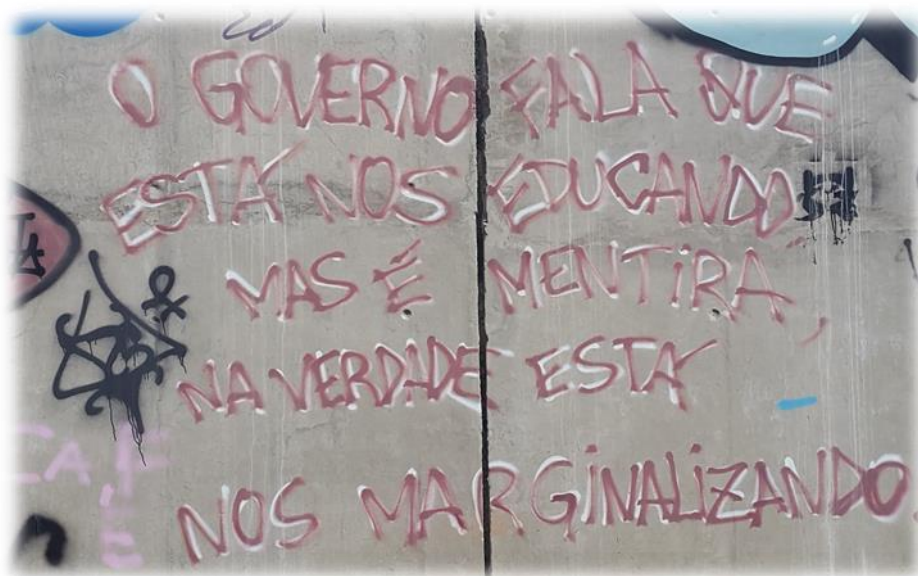 O GOVERNO FALA QUE
ESTÁ NOS EDUCANDO
MAS É MENTIRA,
NA VERDADE ESTÁ
NOS MARGINALIZANDO